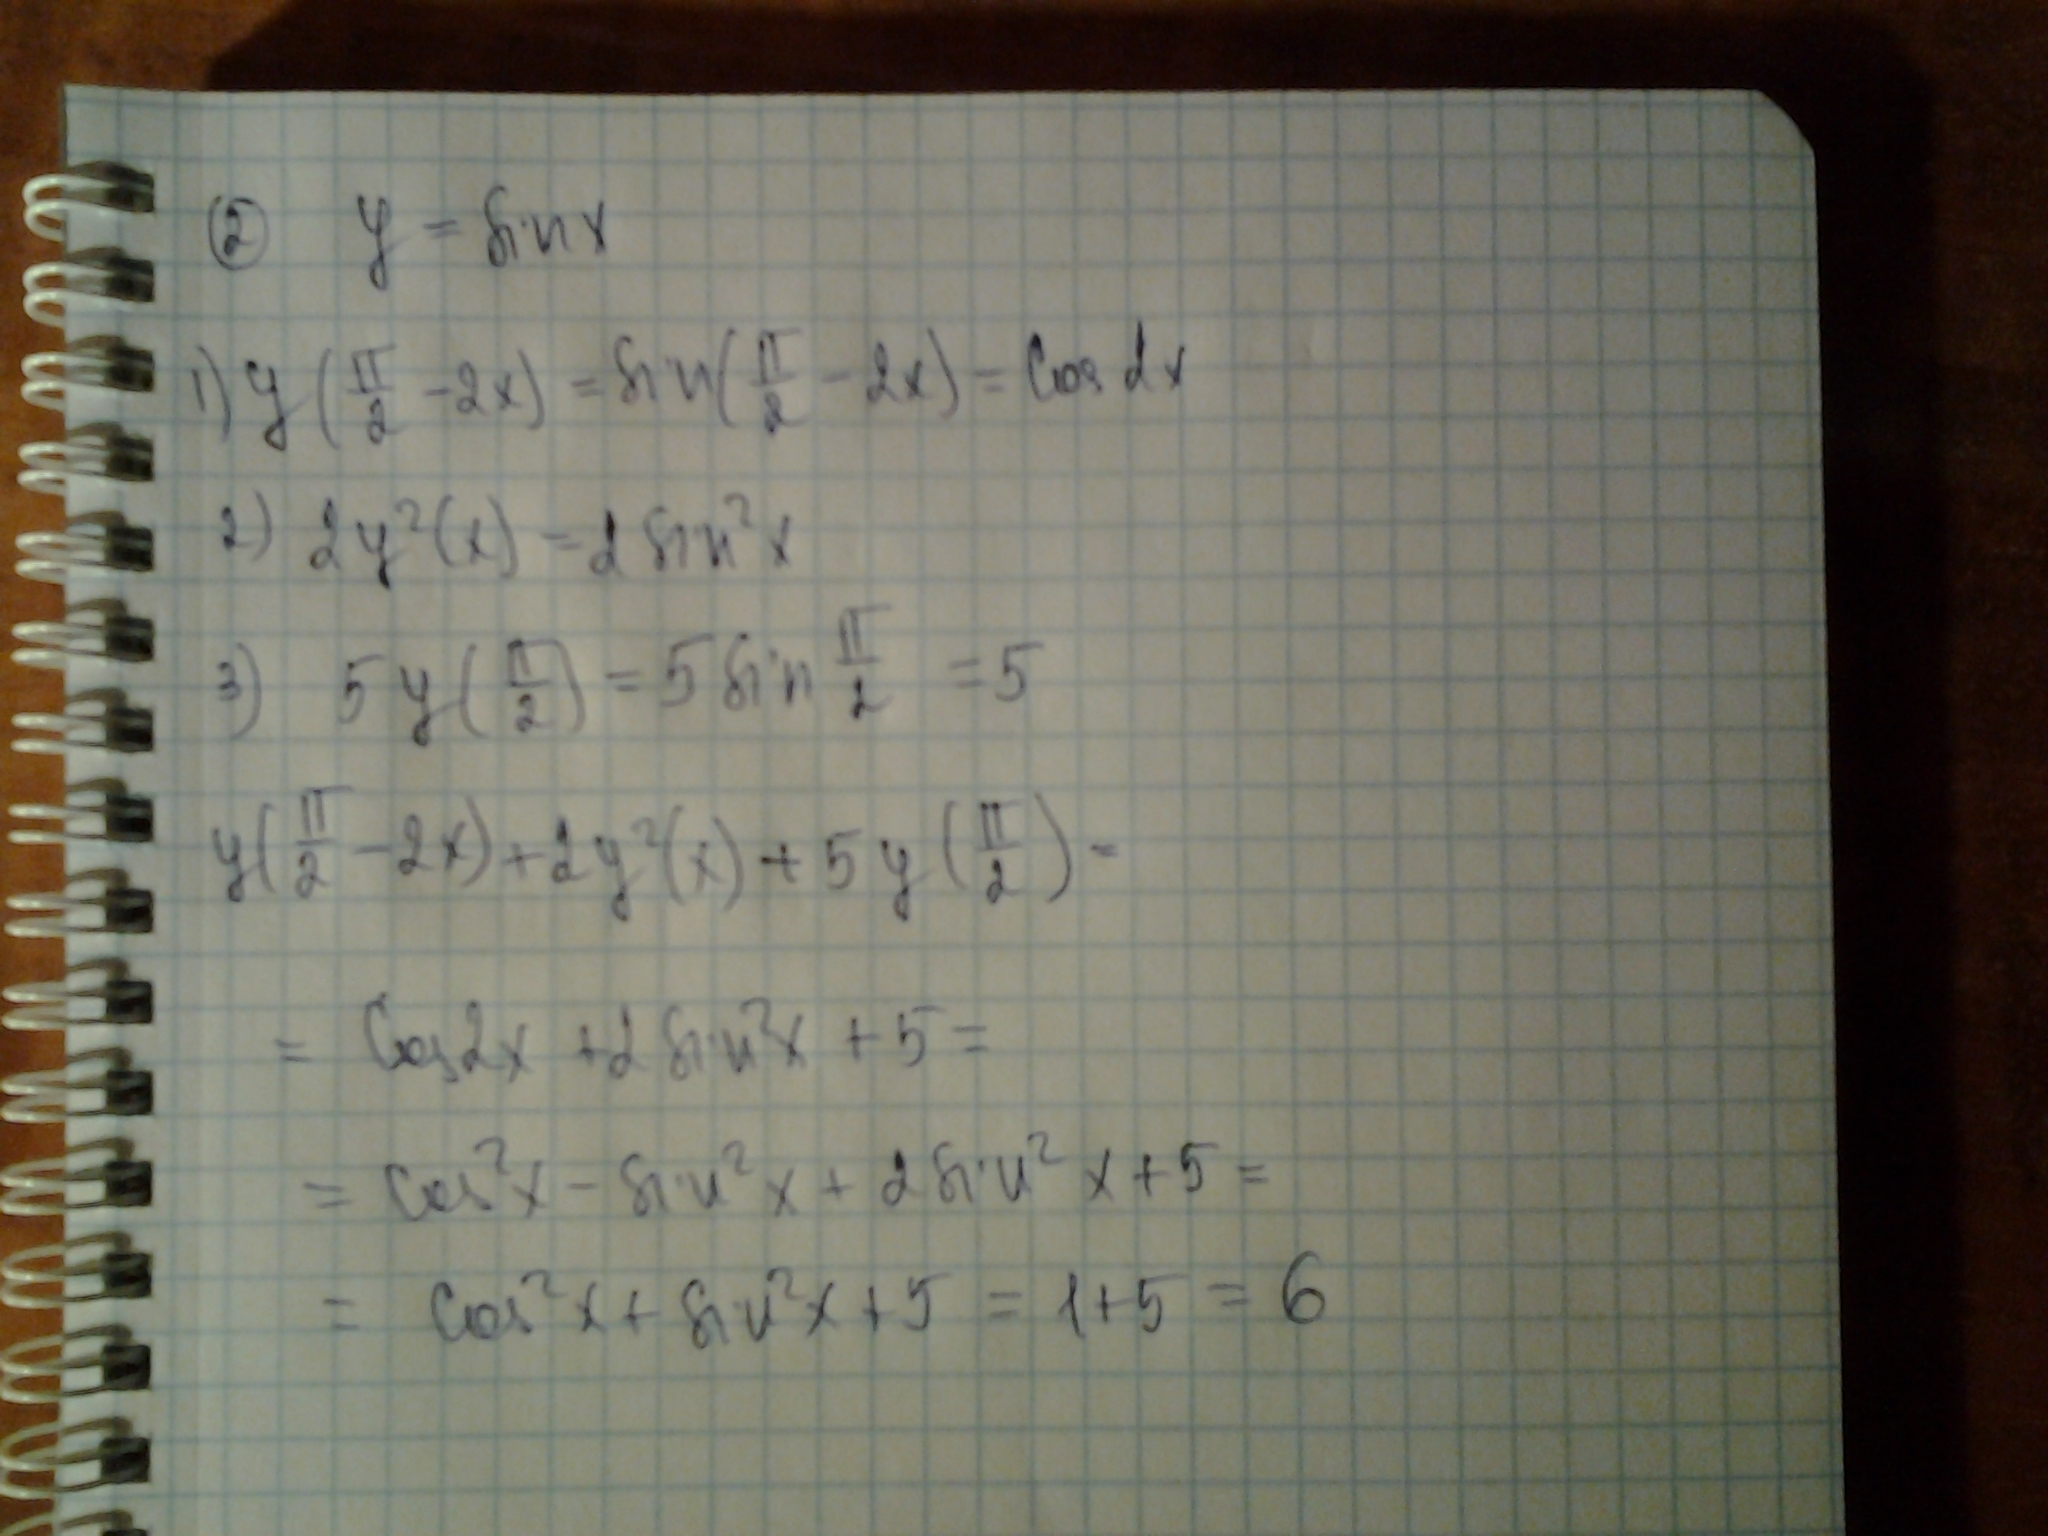 ② y = sin x
1) y(π/2 - 2x) = sin(π/2 - 2x) = cos 2x
2) 2y²(x) = 2 sin²x
3) 5y(π/2) = 5 sin π/2 = 5
y(π/2 - 2x) + 2y²(x) + 5y(π/2) =
= cos 2x + 2 sin²x + 5 =
= cos²x - sin²x + 2 sin²x + 5 =
= cos²x + sin²x + 5 = 1 + 5 = 6